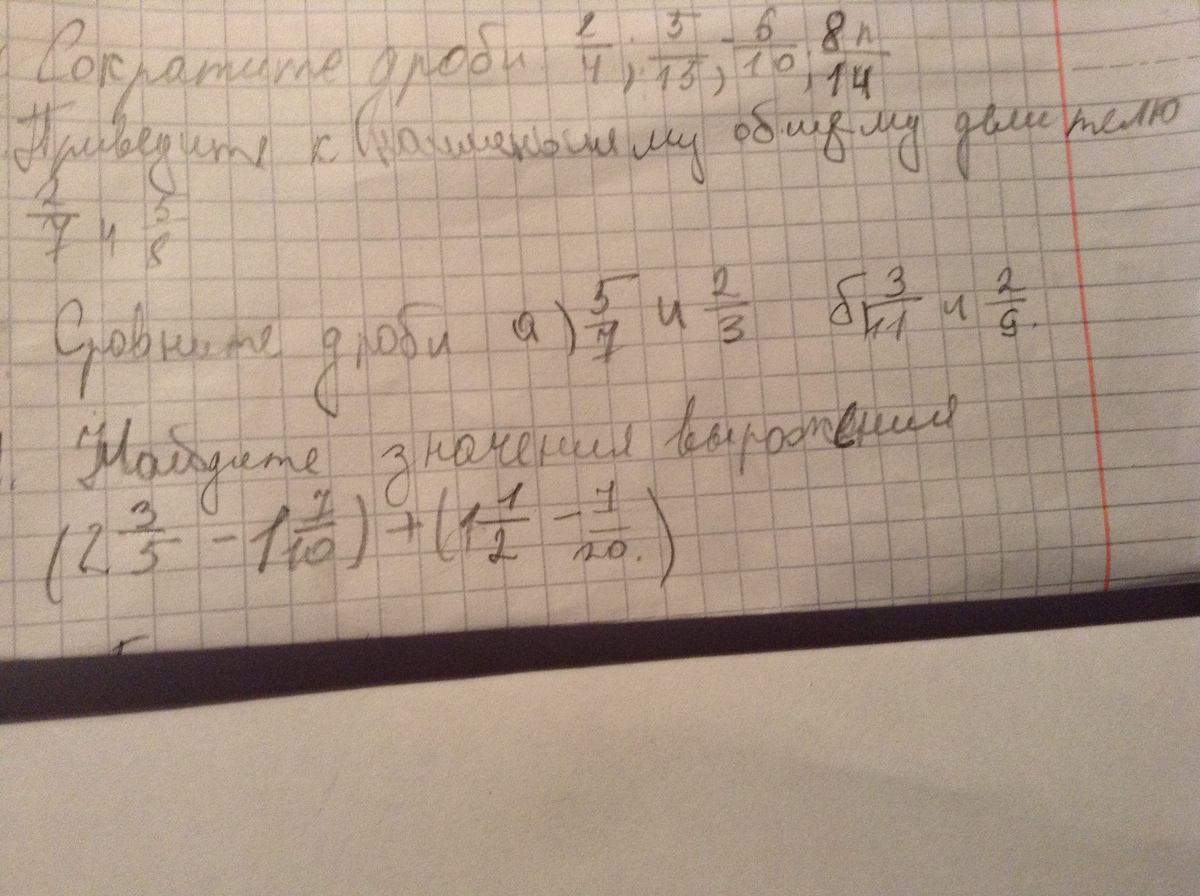 Сократите дроби 2/4; 5/15; 6/10; 8n/14
Приведите к наименьшему общему делителю
2/7 и 5/8
Сравните дроби а) 5/7 и 2/3 б) 3/11 и 2/9.
Найдите значения выражения
(2 3/5 - 1 7/10) + (1 1/2 - 7/20.)